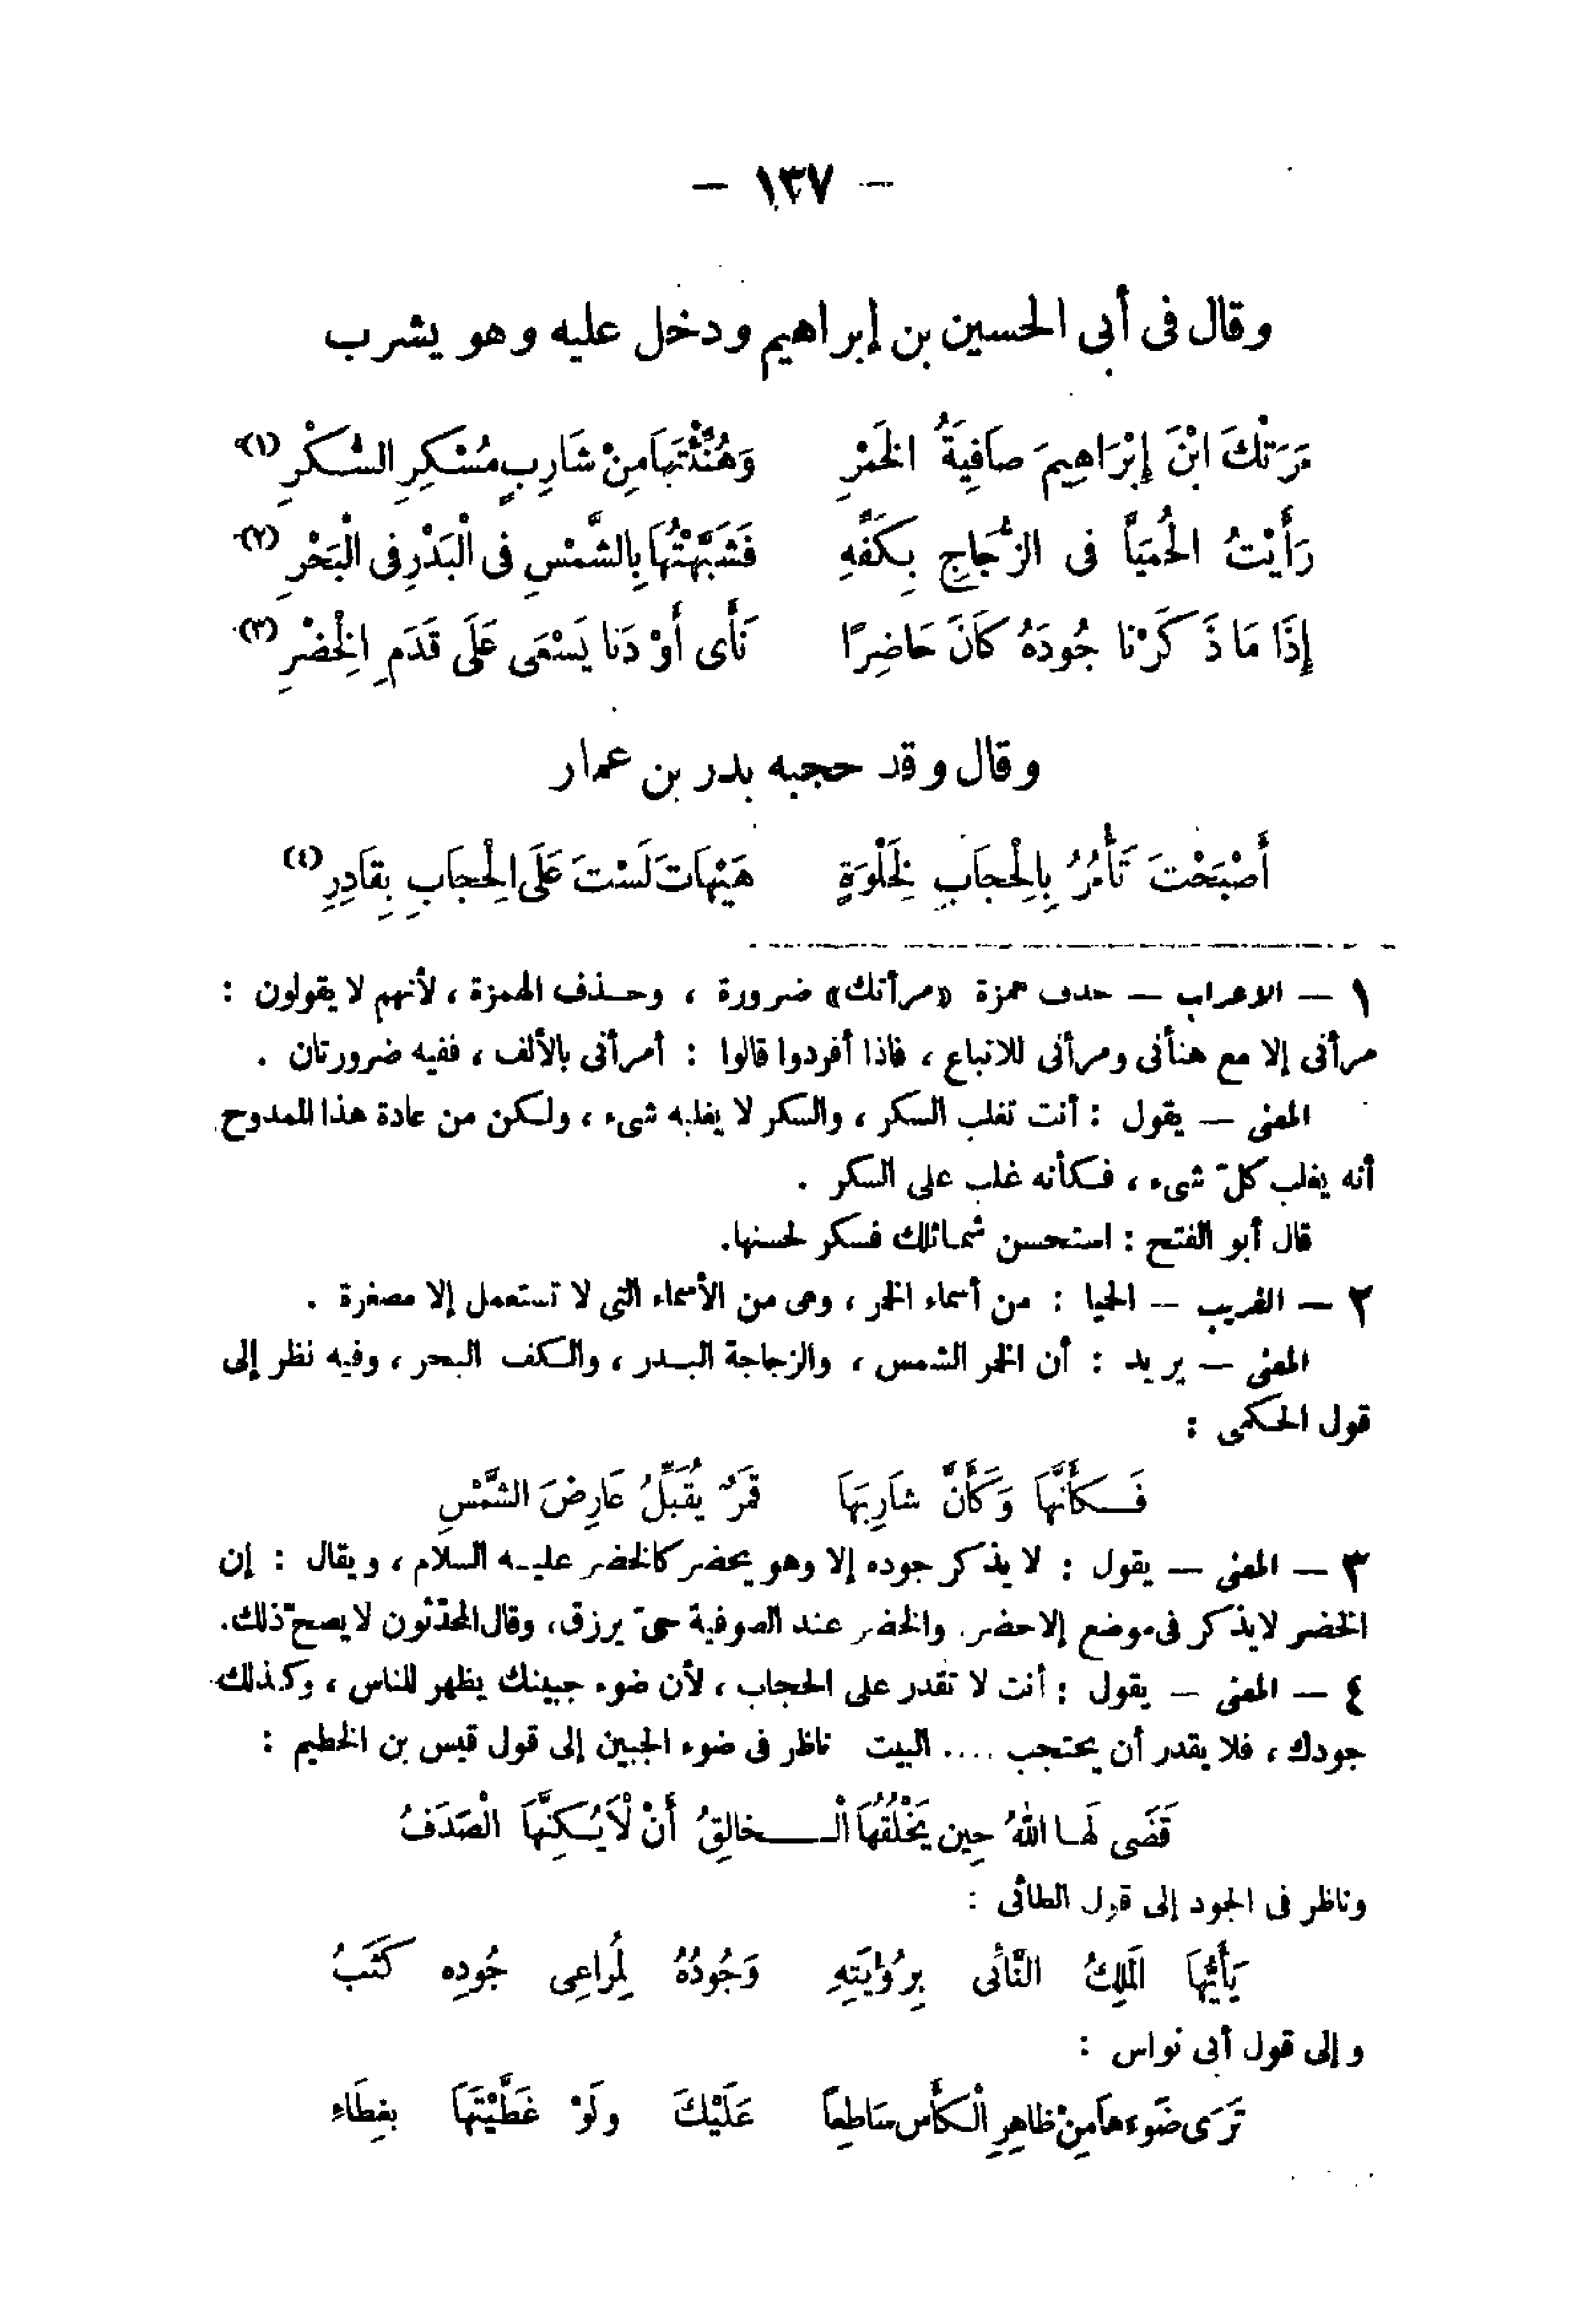 - ١٣٧ -
وقال فى أبى الحسين بن إبراهيم ودخل عليه وهو يشرب
مَرَتْكَ ابْنَ إِبْرَاهِيمَ صَافِيَةُ الْخَمْرِ وَهُنِّئْتَهَا مِنْ شَارِبٍ مُسْكِرِ السُّكْرِ (١)
رَأَيْتُ الْحُمَيَّا فى الزُّجَاجِ بِكَفِّهِ فَشَبَّهْتُهَا بِالشَّمْسِ فى الْبَدْرِ فى الْبَحْرِ (٢)
إِذَا مَا ذَكَرْنا جُودَهُ كَانَ حَاضِرًا نَأَى أَوْ دَنا يَسْعَى عَلَى قَدَمِ الْخِضْرِ (٣)
وقال وقد حجبه بدر بن عمار
أَصْبَحْتَ تَأْمُرُ بِالْحِجَابِ لِخَلْوَةٍ هَيْهَاتَ لَسْتَ عَلَى الْحِجَابِ بِقَادِرِ (٤)
١ — الاعراب — حذف همزة «مرأتك» ضرورة ، وحذف الهمزة ، لأنهم لا يقولون :
مرأنى إلا مع هنأنى ومرأنى للاتباع ، فاذا أفردوا قالوا : أمرأنى بالألف ، ففيه ضرورتان .
المعنى — يقول : أنت تغلب السكر ، والسكر لا يغلبه شىء ، ولكن من عادة هذا الممدوح
أنه يغلب كلّ شىء ، فكأنه غلب على السكر .
قال أبو الفتح : استحسن شمائلك فسكر لحسنها.
٢ — الغريب — الحميا : من أسماء الخمر ، وهى من الأسماء التى لا تستعمل إلا مصغرة .
المعنى — يريد : أن الخمر الشمس ، والزجاجة البدر ، والكف البحر ، وفيه نظر إلى
قول الحكمى :
فَكَأَنَّهَا وَكَأَنَّ شَارِبَهَا قَمَرٌ يُقَبِّلُ عَارِضَ الشَّمْسِ
٣ — المعنى — يقول : لا يذكر جوده إلا وهو يحضر كالخضر عليه السلام ، ويقال : إن
الخضر لا يذكر فى موضع إلا حضر. والخضر عند الصوفية حىّ يرزق، وقال المحدّثون لا يصحّ ذلك.
٤ — المعنى — يقول : أنت لا تقدر على الحجاب ، لأن ضوء جبينك يظهر للناس ، وكذلك
جودك ، فلا يقدر أن يحتجب .... البيت ناظر فى ضوء الجبين إلى قول قيس بن الخطيم :
قَضَى لَهَا اللهُ حِين يَخْلُقُهَا الْـخالِقُ أَنْ لَا يُكِنَّهَا الْصَدَفُ
وناظر فى الجود إلى قول الطائى :
يَأَيُّهَا الَمَلِكُ النَّائَى بِرُؤْيَتِهِ وَجُودُهُ لِمُراعِى جُودِه كَثَبُ
وإلى قول أبى نواس :
تَرَى ضَوءَها مِنْ ظاهِرِ الْكَأْسِ سَاطِعاً عَلَيْكَ ولَوْ غَطَّيْتَهَا بغِطَاءِ